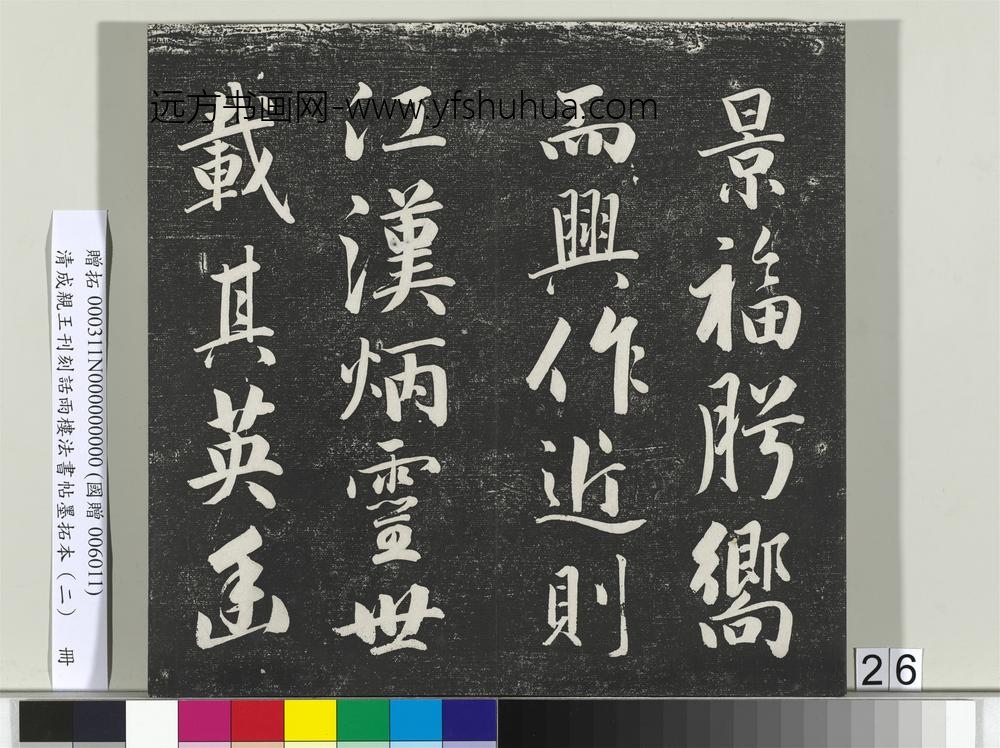 景福肸嚮
而興作近則
江漢炳靈世
載其英
远方书画网-www.yfshuhua.com
贈拓 000311N000000000 (國贈 006011)
清成親王刊刻話雨樓法書帖墨拓本(二) 冊
26